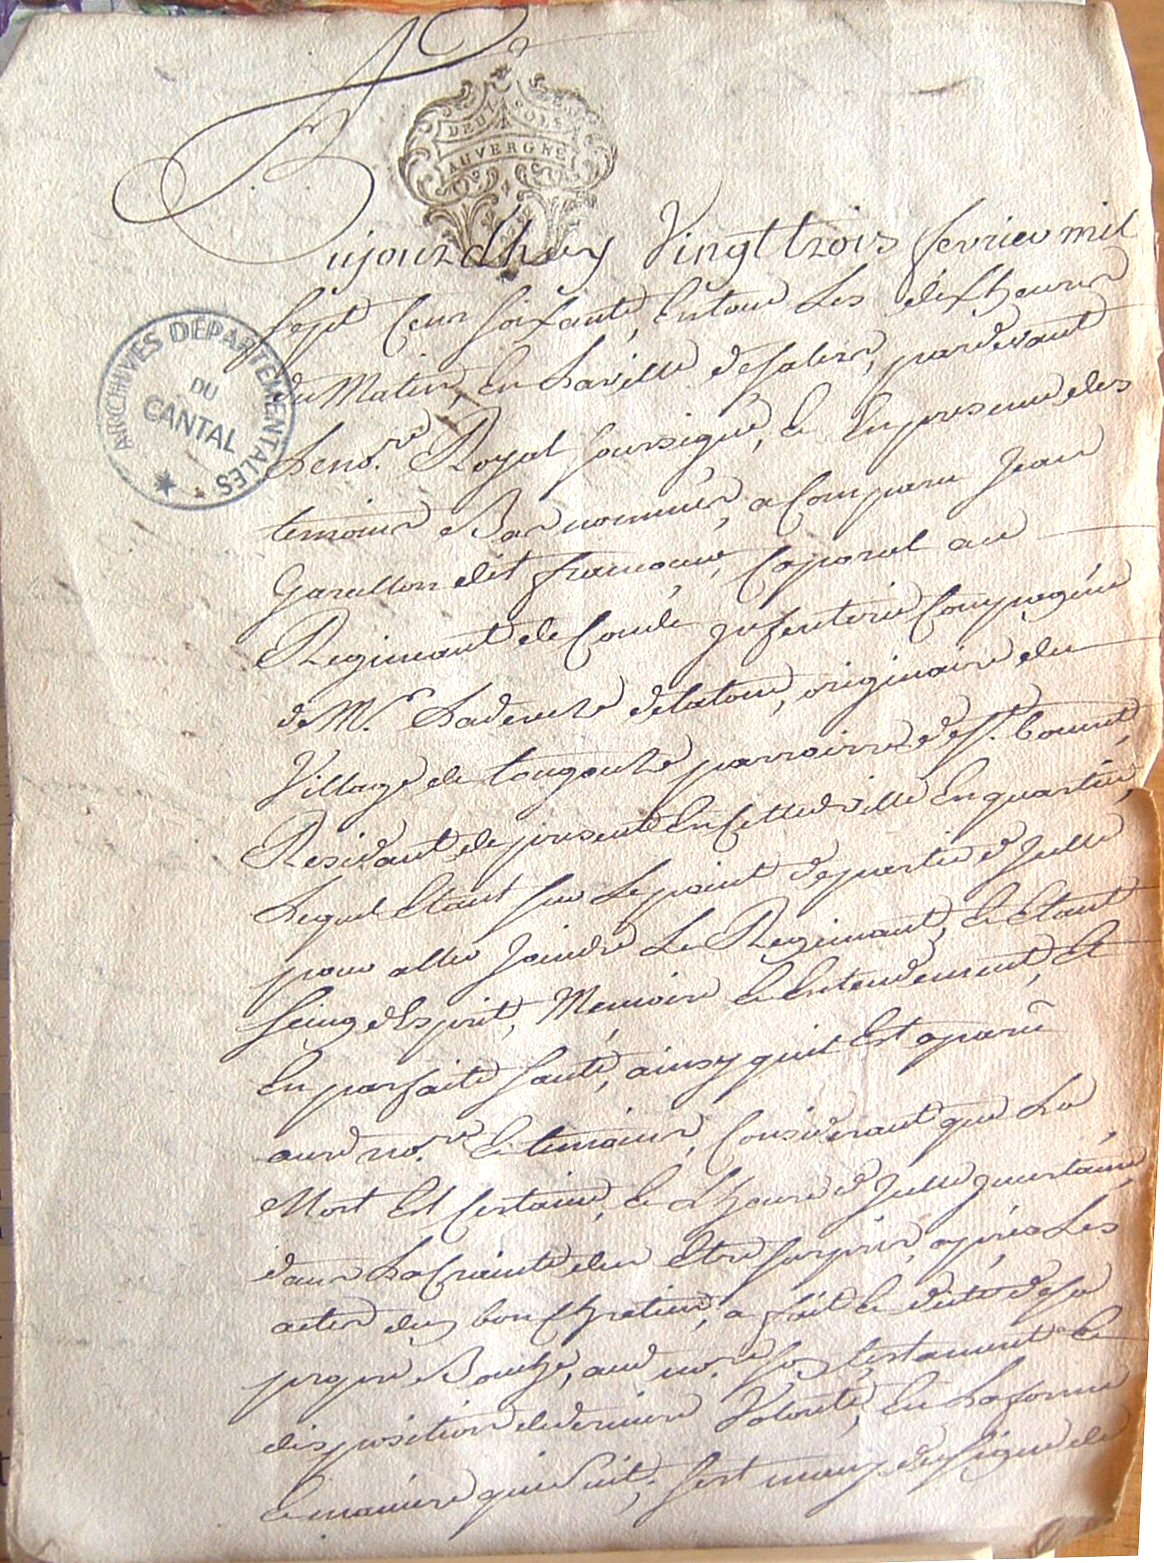 DEUX SOLS
AUVERGNE
Aujourdhuy Vingt trois fevrier mil
Sept Cens soixante, Entour Les dix heures
du Matin, En La ville de salers, pardevant
Le no.re Royal soussigné, & En presence des
temoins Bas nommés, a Comparu Jean
dit francoeur, Caporal au
Regimant de Condé Infenterie Compagnie
de Mr. delatour, originaire du
Village de parroisse de st. bonnet,
Residant de present En Cette ville En quartier,
Lequel Etant sur Le point de partir d'Icelle
pour aller Joindre Le Regimant, & Etant
seing d'Esprit, Memoire & Entendement, Et
En parfaite santé, ainsy quil Est aparu
aud no.re & temoins, Considerant que La
Mort Est Certaine, & L'heure d'Icelle Incertaine,
dans La Crainte den Etre surpris, après Les
actes du bon Chretien, a fait & dicté de sa
propre Bouche, aud no.re son testament &
disposition de derniere Volonté, En La forme
& maniere quie suit; sest muny du signe de
ARCHIVES DÉPARTEMENTALES
DU
CANTAL